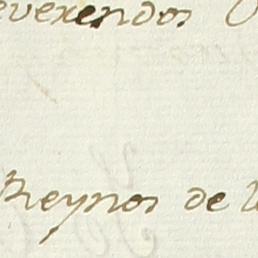 everendos
Reynos de